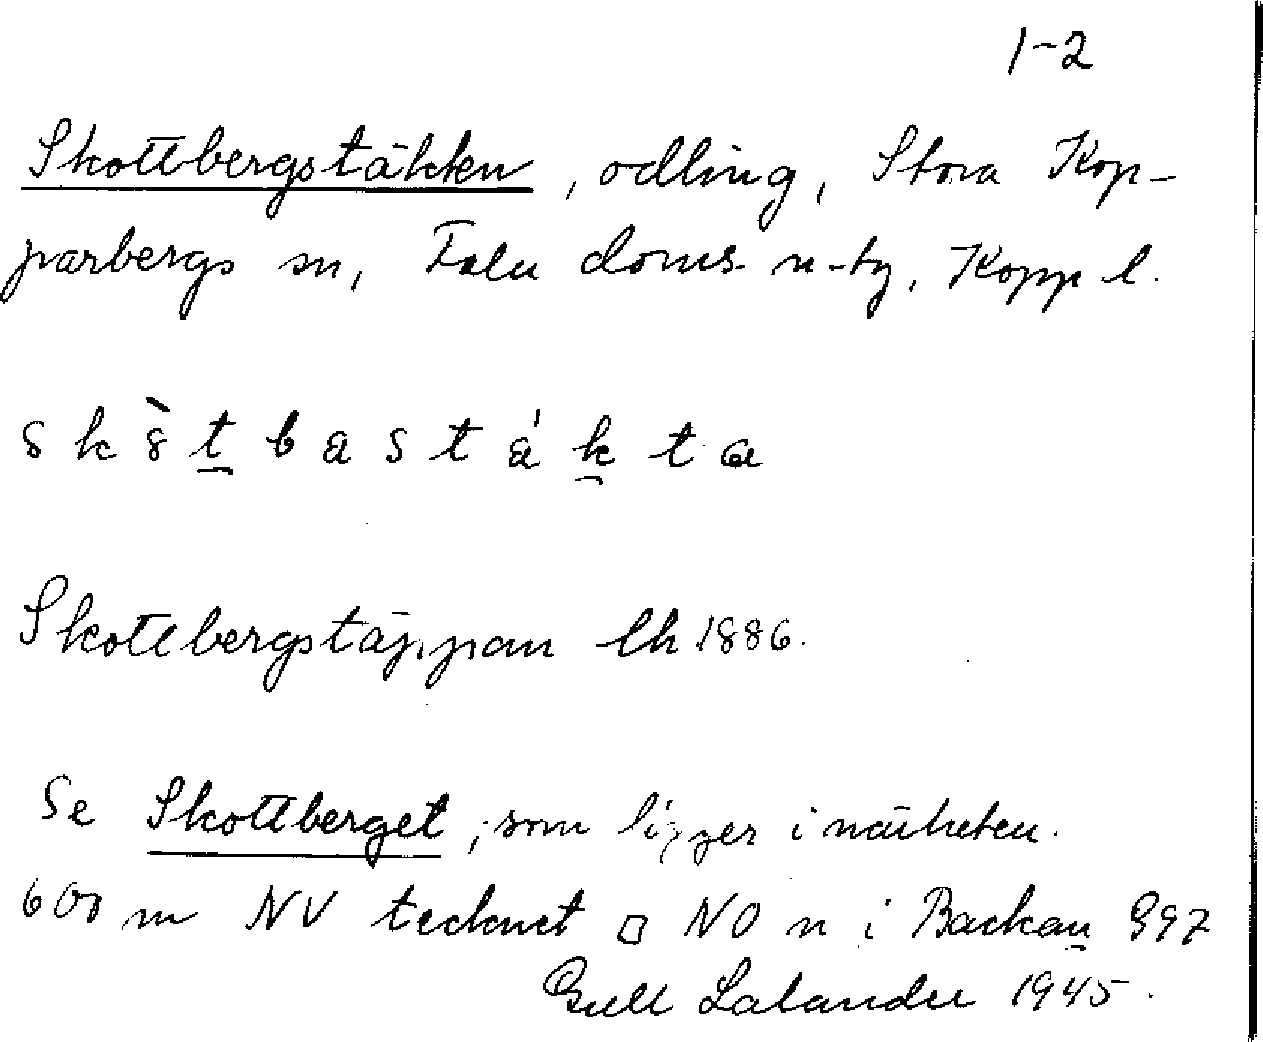 1-2
Skottbergstäkten, odling, Stora Kop-
parbergs sn, Falu doms- n-tg, Kopp l.
s k ò t b a s t á k t a
Skottbergstäppan lh 1886.
Se Skottberget, som ligger i närheten.
600 m NV tecknet □ NO n i Backan 997
Gull Lalander 1945.